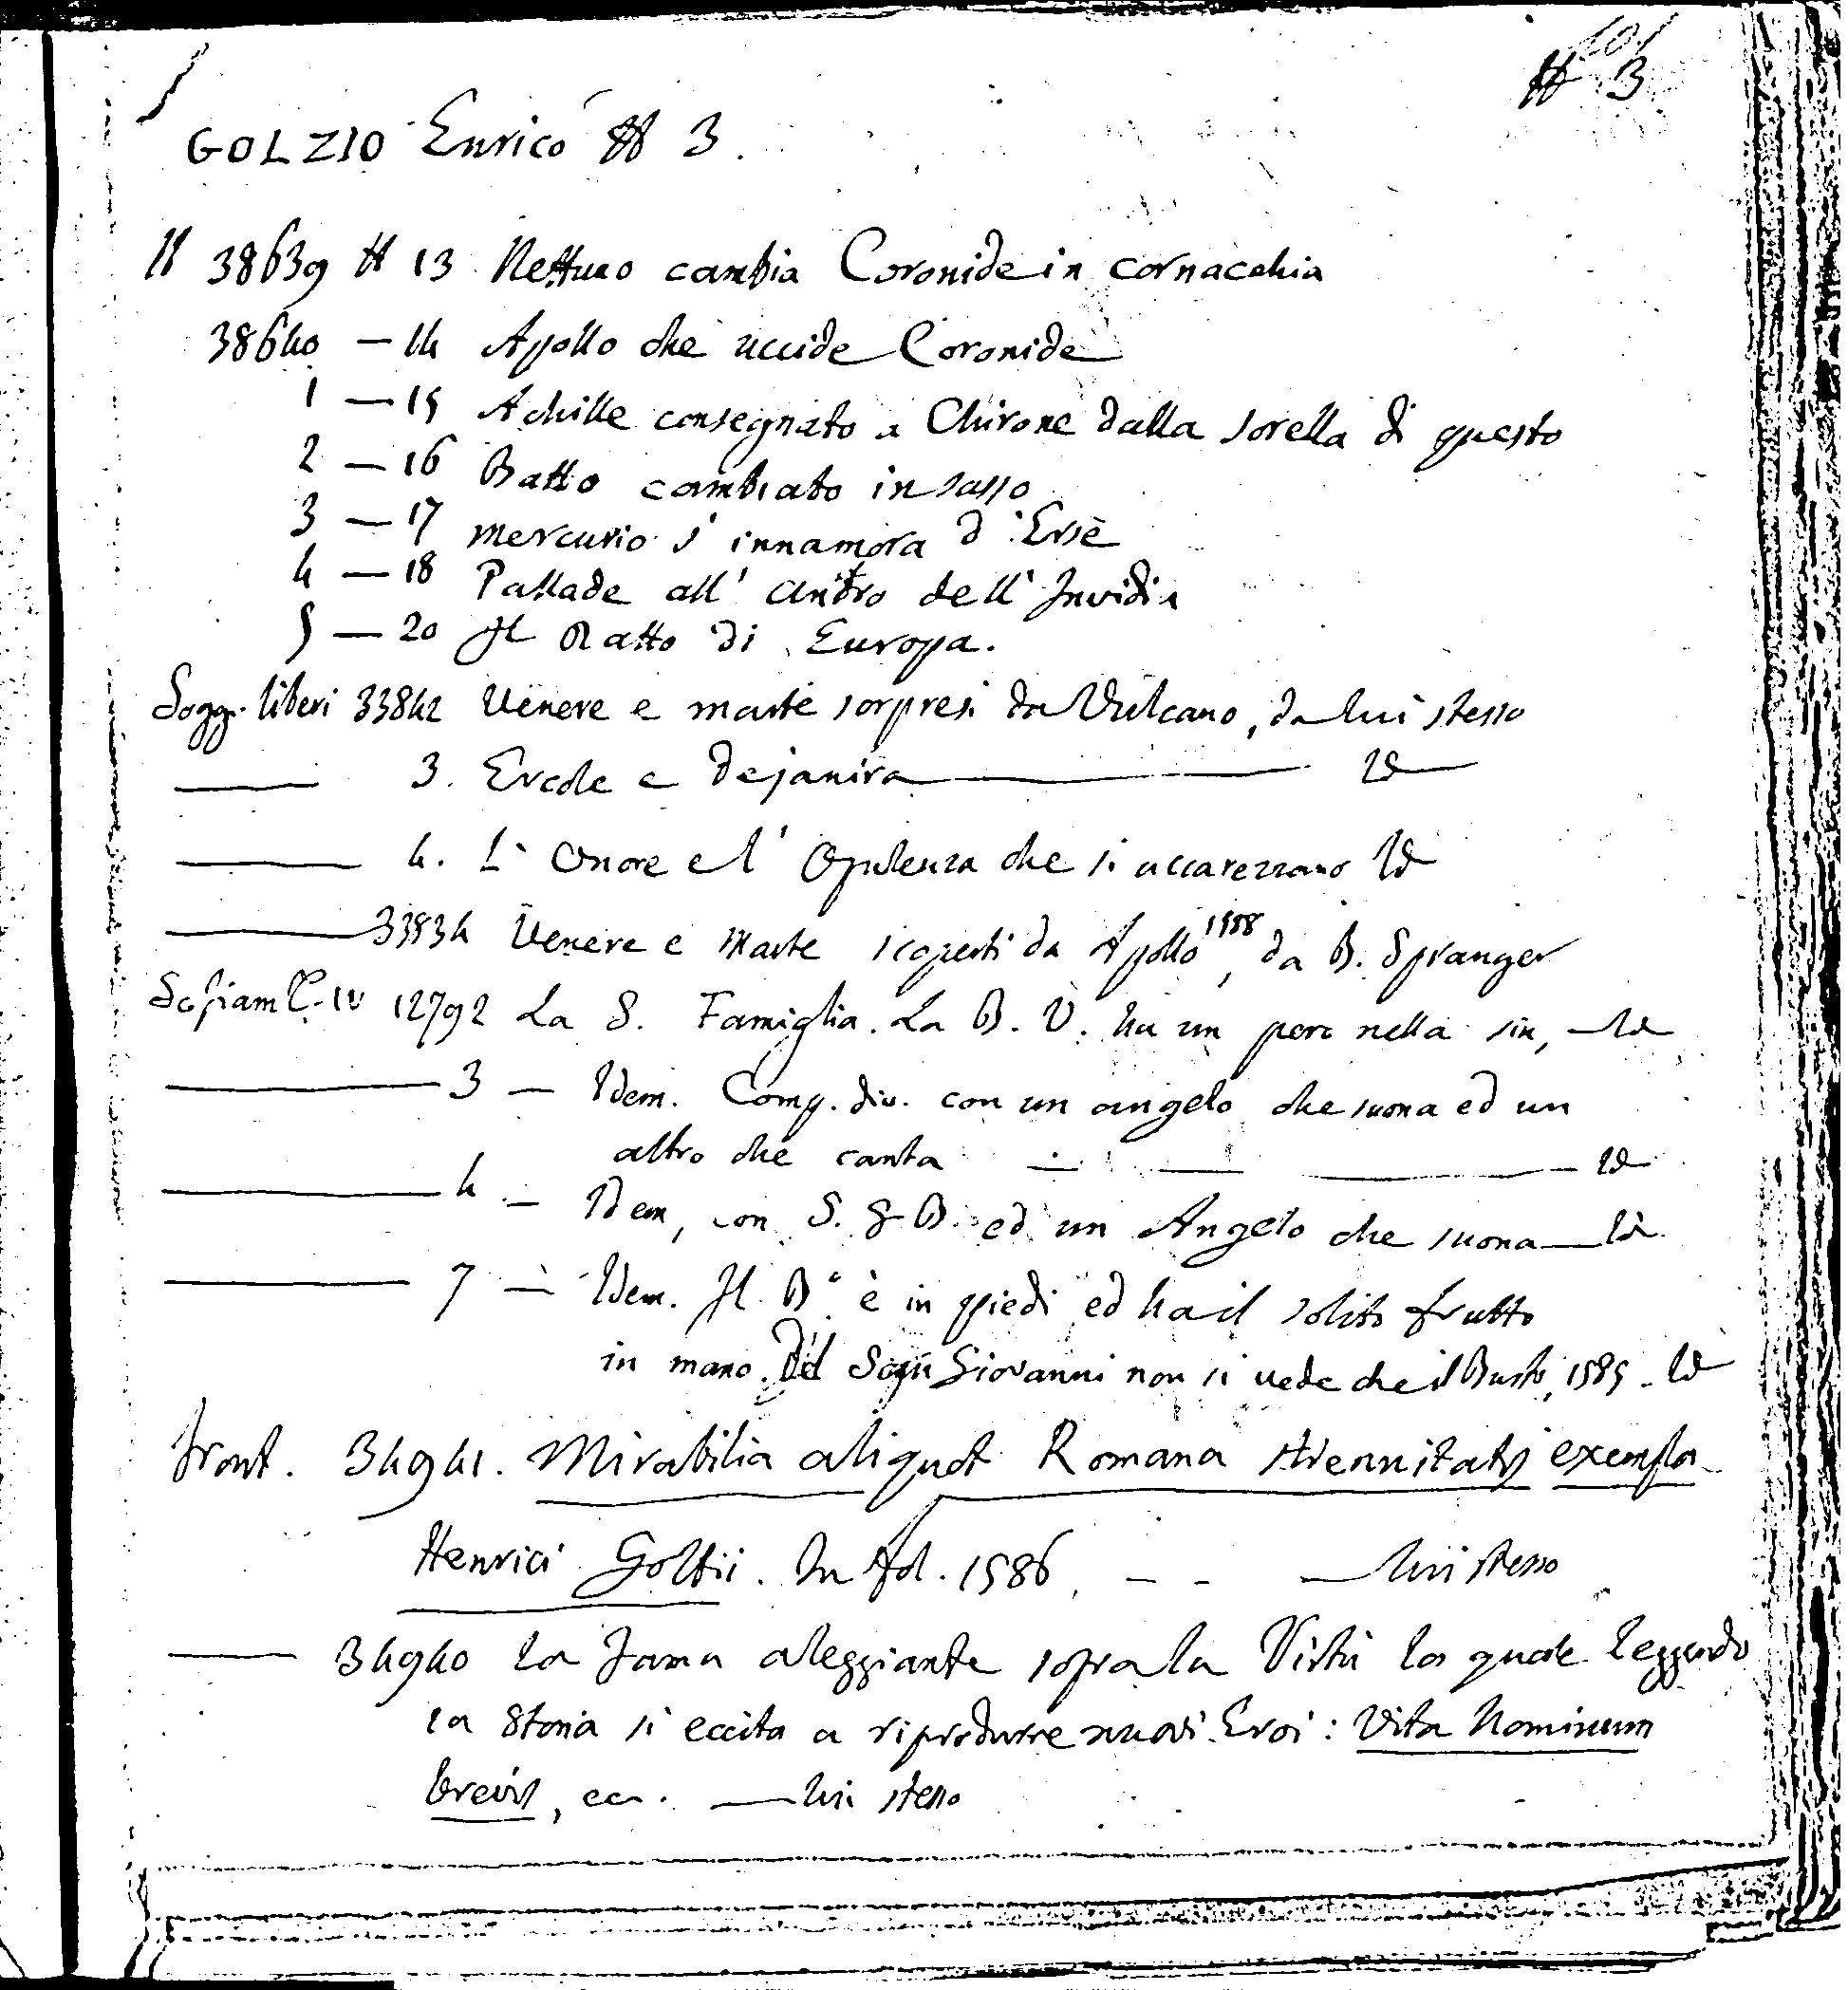 101
# 3
GOLZIO Enrico # 3.
38639 # 13 Nettuno cambia Coronide in cornacchia
38640 — 14 Apollo che uccide Coronide
1 — 15 Achille consegnato a Chirone dalla sorella di questo
2 — 16 Batto cambiato in sasso
3 — 17 Mercurio s'innamora d'Erse
4 — 18 Pallade all' antro dell' Invidia
5 — 20 Il Ratto di Europa.
Sogg. liberi 33842 Venere e Marte sorpresi da Vulcano, da lui stesso
— 3. Ercole e Dejanira — Id
— 4. L'Onore e l'Opulenza che si accarezzano Id
— 33834 Venere e Marte scoperti da Apollo 1588, da B. Spranger
12792 La S. Famiglia. La B. V. ha un pero nella sin, — Id
— 3 — Idem. Comp. div. con un angelo che suona ed un
altro che canta — — — Id
— 4 — Idem, con S. G. B. ed un Angelo che suona — Id
— 7 — Idem. Il B° è in piedi ed ha il solito frutto
in mano. Del Giovanni non si vede che il Busto, 1585 - Id
Front. 34941. Mirabilia aliquot Romana strennitatis exempla
Henrici Goltii. In fol. 1586, - - — lui stesso
— 34940 La Fama aleggiante sopra la Virtù la quale leggendo
la Storia si eccita a riprodurre nuovi Eroi: Vita hominum
brevis, ecc. — lui stesso